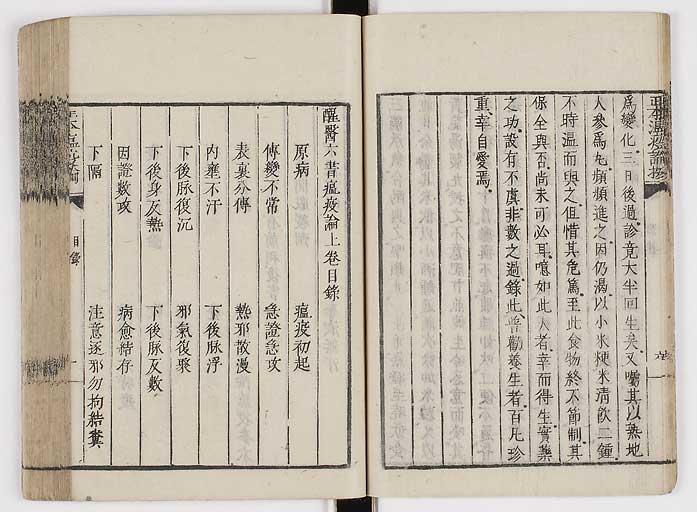 為變化三日後過診竟大半回生矣又囑其以熟地
人參為丸頻頻進之因仍渴以小米粳米清飲二鍾
不時溫而與之但惜其危篤至此食物終不節制其
保全與否尚未可必耳噫如此人者幸而得生實藥
之功設有不虞非數之過錄此普勸養生者百凡珍
重幸自愛焉
醒醫六書瘟疫論上卷目錄
原病
瘟疫初起
傳變不常
急證急攻
表裏分傳
熱邪散漫
內壅不汗
下後脉浮
下後脉復沉
邪氣復聚
下後身反熱
下後脉反數
因證數攻
病愈結存
下隔
注意逐邪勿拘結糞
目錄